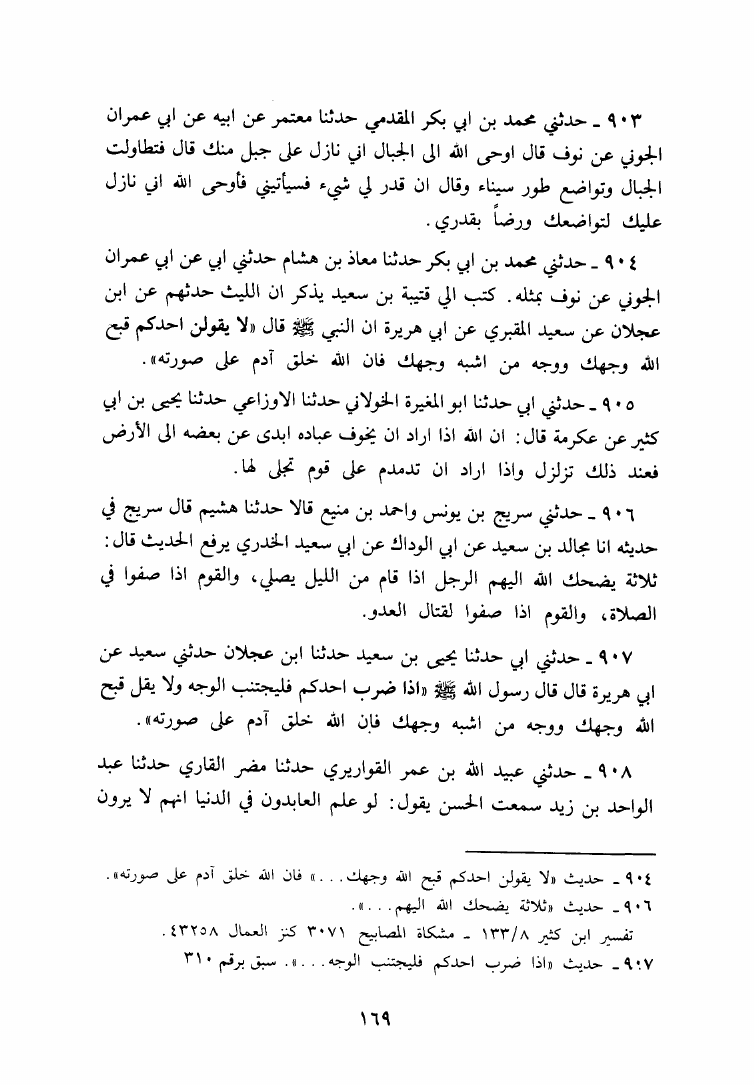 ٩٠٣ ـ حدثني محمد بن ابي بكر المقدمي حدثنا معتمر عن ابيه عن ابي عمران
الجوني عن نوف قال اوحى الله الى الجبال اني نازل على جبل منك قال فتطاولت
الجبال وتواضع طور سيناء وقال ان قدر لي شيء فسيأتيني فأوحى الله اني نازل
عليك لتواضعك ورضاً بقدري.
٩٠٤ ـ حدثني محمد بن ابي بكر حدثنا معاذ بن هشام حدثني ابي عن ابي عمران
الجوني عن نوف بمثله. كتب الي قتيبة بن سعيد يذكر ان الليث حدثهم عن ابن
عجلان عن سعيد المقبري عن ابي هريرة ان النبي ﷺ قال «لا يقولن احدكم قبع
الله وجهك ووجه من اشبه وجهك فان الله خلق آدم على صورته».
٩٠٥ ـ حدثني ابي حدثنا ابو المغيرة الخولاني حدثنا الاوزاعي حدثنا يحيى بن ابي
كثير عن عكرمة قال: ان الله اذا اراد ان يخوف عباده ابدى عن بعضه الى الأرض
فعند ذلك تزلزل واذا اراد ان تدمدم على قوم تجلى لها.
٩٠٦ ـ حدثني سريج بن يونس واحمد بن منيع قالا حدثنا هشيم قال سريج في
حديثه انا مجالد بن سعيد عن ابي الوداك عن ابي سعيد الخدري يرفع الحديث قال:
ثلاثة يضحك الله اليهم الرجل اذا قام من الليل يصلي، والقوم اذا صفوا في
الصلاة، والقوم اذا صفوا لقتال العدو.
٩٠٧ ـ حدثني ابي حدثنا يحيى بن سعيد حدثنا ابن عجلان حدثني سعيد عن
ابي هريرة قال قال رسول الله ﷺ «اذا ضرب احدكم فليجتنب الوجه ولا يقل قبح
الله وجهك ووجه من اشبه وجهك فإن الله خلق آدم على صورته».
٩٠٨ ـ حدثني عبيد الله بن عمر القواريري حدثنا مضر القاري حدثنا عبد
الواحد بن زيد سمعت الحسن يقول: لو علم العابدون في الدنيا انهم لا يرون
٩٠٤ ـ حديث «لا يقولن احدكم قبح الله وجهك...» فان الله خلق آدم على صورته».
٩٠٦ ـ حديث «ثلاثة يضحك الله اليهم...».
تفسير ابن كثير ١٣٣/٨ ـ مشكاة المصابيح ٣٠٧١ كنز العمال ٤٣٢٥٨.
٩٠٧ ـ حديث «اذا ضرب احدكم فليجتنب الوجه...». سبق برقم ٣١٠
١٦٩